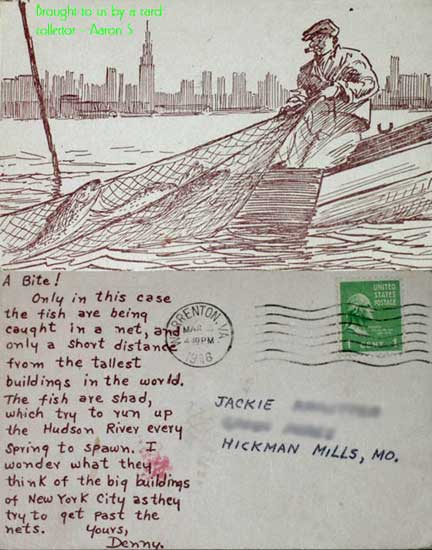 Brought to us by a card
collector - Aaron S.
A Bite!
Only in this case
the fish are being
caught in a net, and
only a short distance
from the tallest
buildings in the world.
The fish are shad,
which try to run up
the Hudson River every
Spring to spawn. I
wonder what they
think of the big buildings
of New York City as they
try to get past the
nets. Yours,
Denny.
WARRENTON, VA.
MAR
4 30 PM
UNITED
STATES
POSTAGE
1 CENT 1
JACKIE
HICKMAN MILLS, MO.